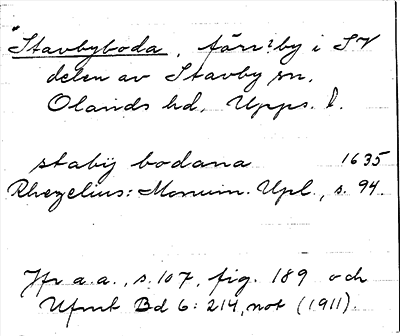 "Stavbyboda, förr? by i SV
delen av Stavby sn,
Olands hd, Upps. l.
stabij bodana 1635
Rhezelius: Monum. Upl., s. 94.
Jfr a.a., s. 107, fig. 189 och
Ufmt Bd 6: 214, not (1911).